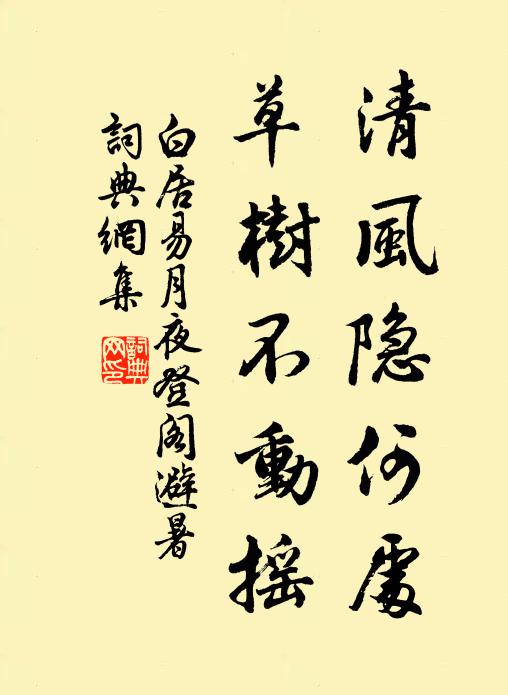 清風隐何處
草樹不動摇
白居易月夜登阁避暑
詞典網集
詞典网印